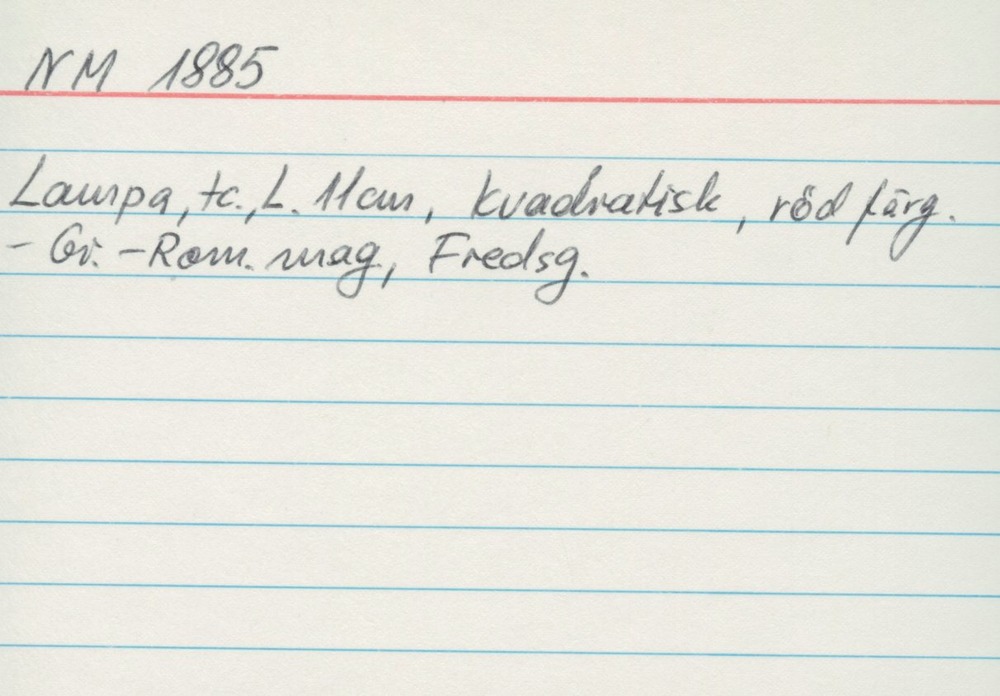 NM 1885
Lampa, tc., L. 11cm, kvadratisk, röd färg.
- Gr. -Rom. mag, Fredsg.